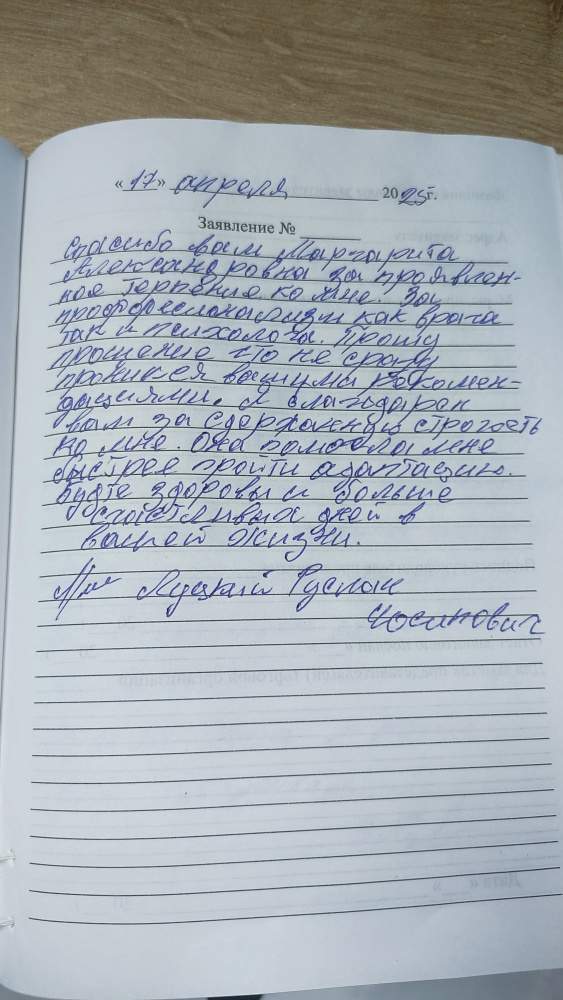 «17» апреля 2025г.
Заявление №
Спасибо вам Маргарита
Александровна за проявлен-
ное терпение ко мне. За
профессионализм как врача
так и психолога. Прошу
прощение что не сразу
проникся вашими рекомен-
дациями. Я благодарен
вам за сдержанную строгость
ко мне. Она помогла мне
быстрее пройти адаптацию.
Будте здоровы и больше
счастливых дней в
вашей жизни.
Луцкий Руслан